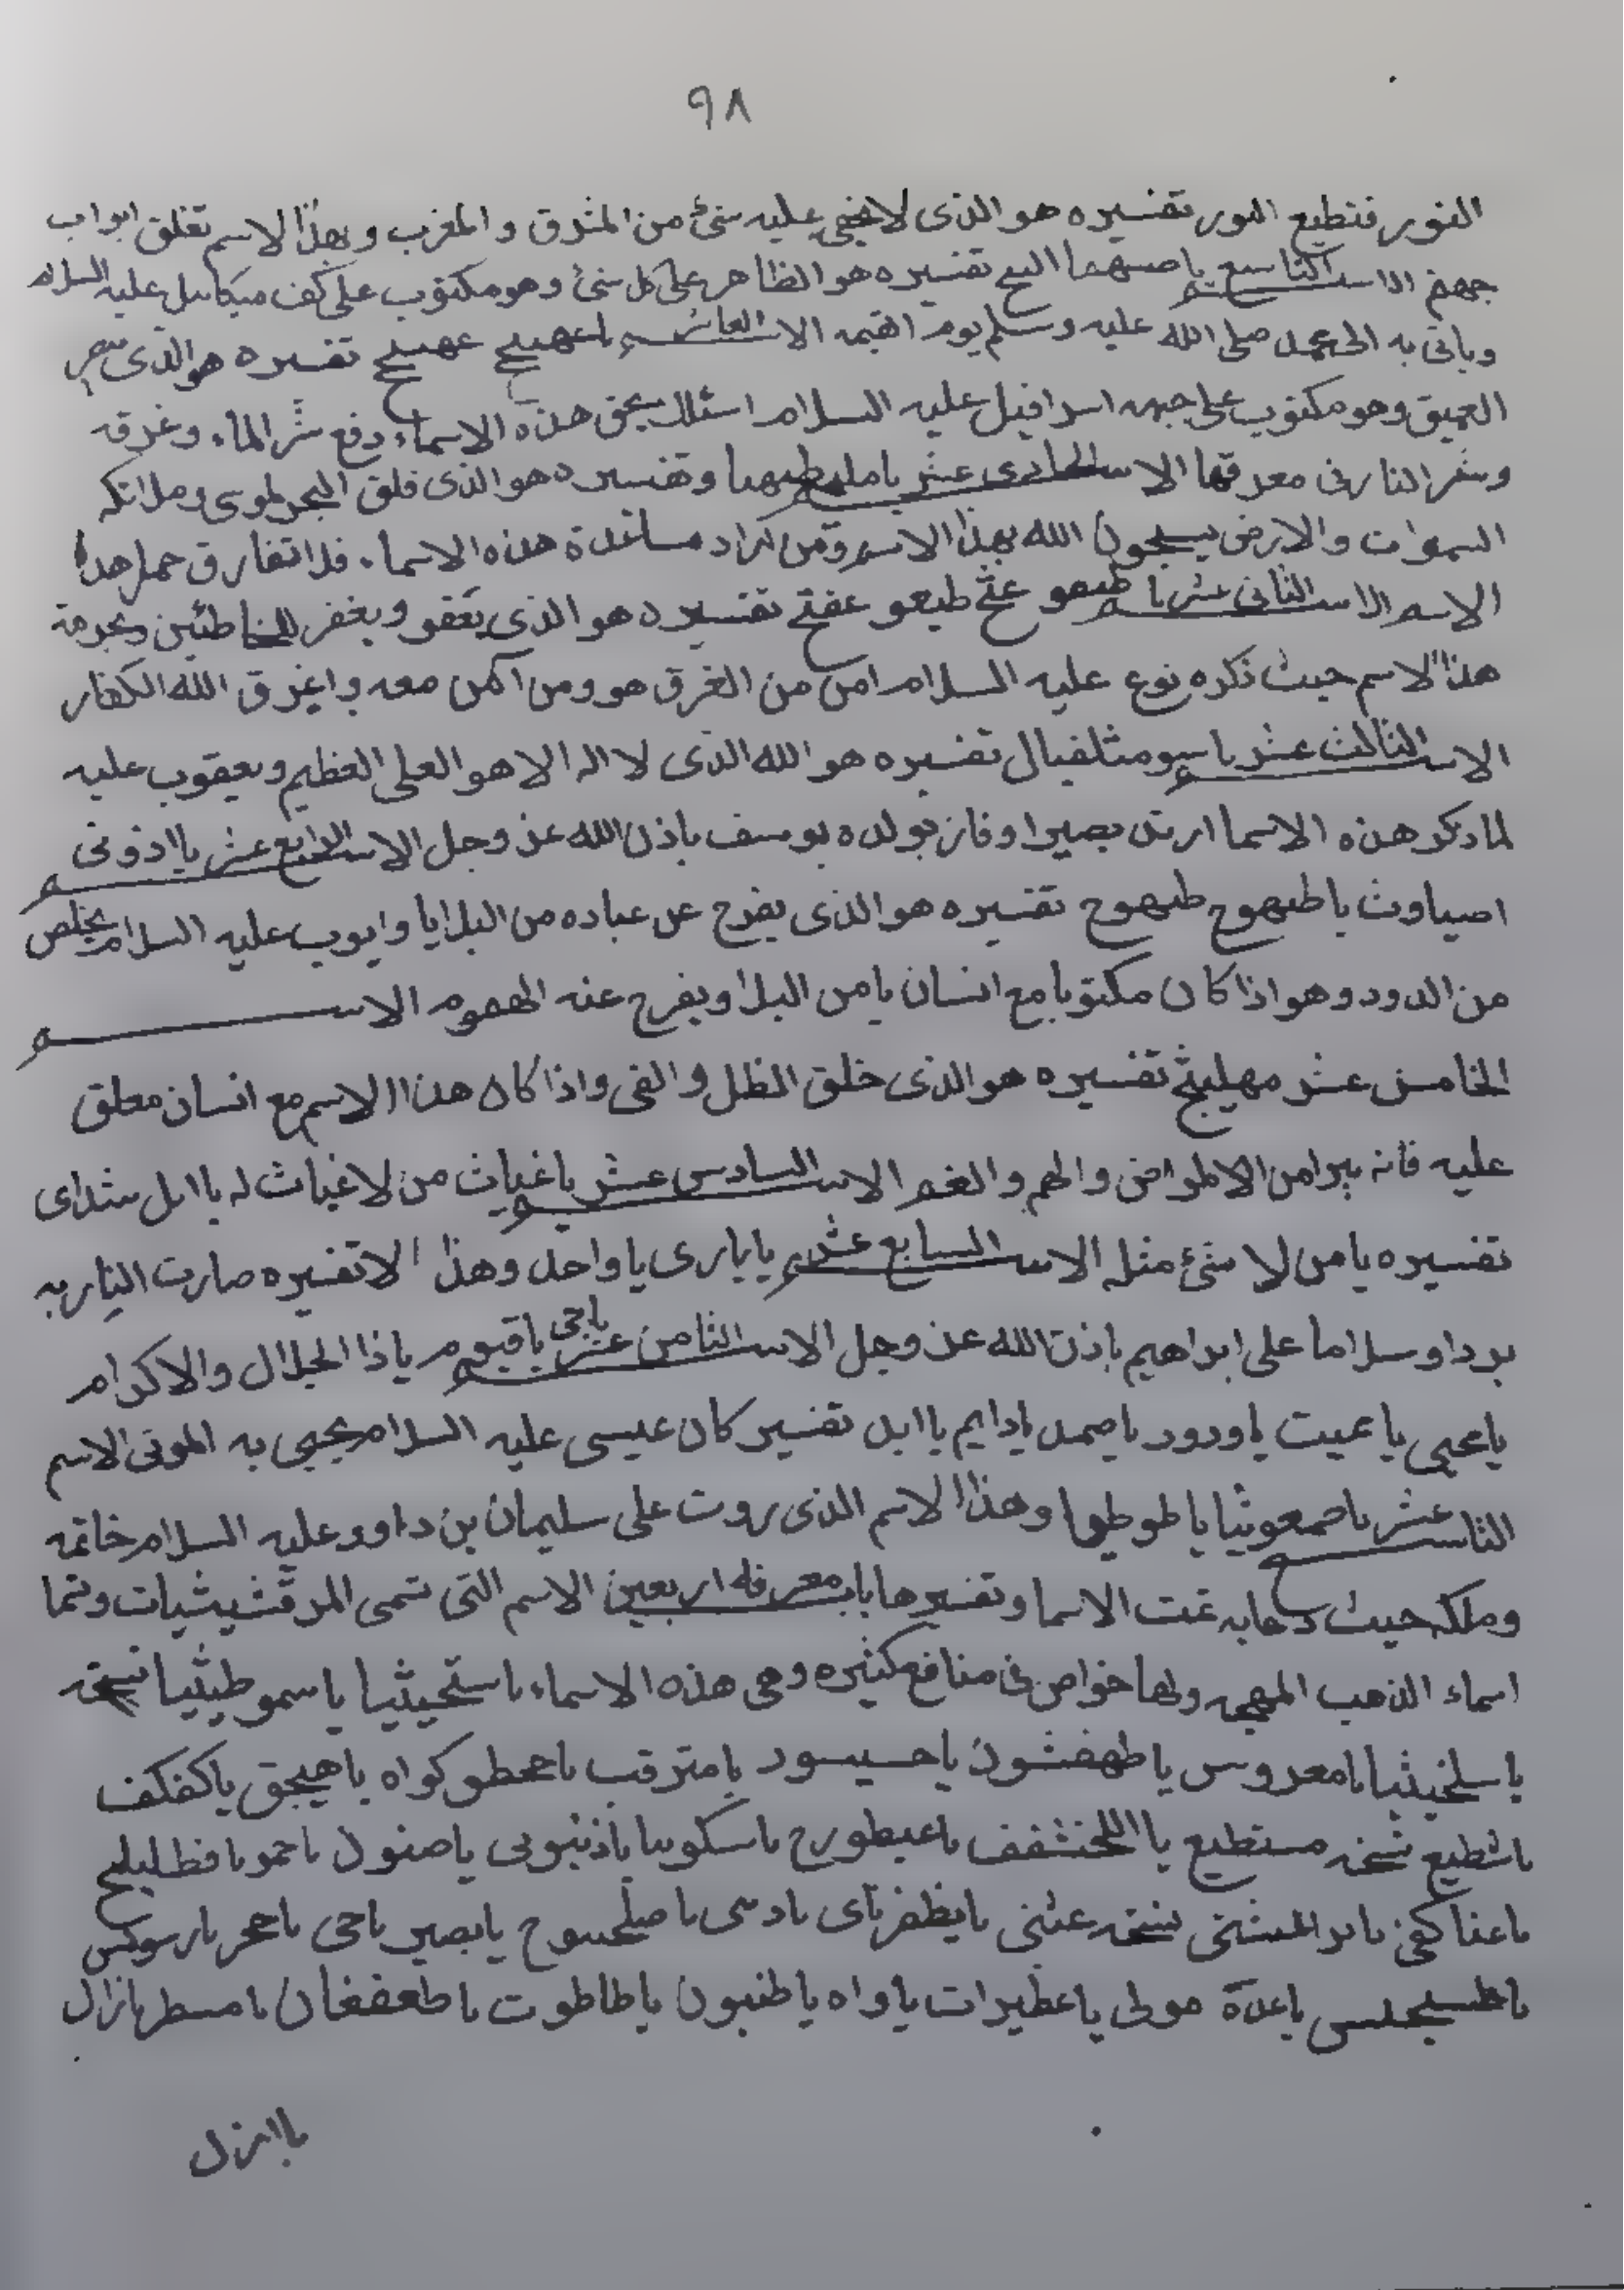 ٩٨
النور فتطيع النور تفسيره هو الذى لا يخفى عليه شئ من المشرق و المغرب و بهذا الاسم تغلق ابواب
جهنم الاسم التاسع تفسيره هو الظاهر على كل شئ وهو مكتوب على كف ميكائيل عليه السلام
وياتى به الى محمد صلى الله عليه وسلم يوم القيمه الاسم العاشر ياعهيج عهيج تفسيره هو الذى
العميق وهو مكتوب على جبهه اسرافيل عليه السلام اسئلك بحق هذه الاسماء دفع شر الماء وغرقه
وشر النار فى معرقها الاسم الحادى عشر وتفسيره هو الذى فلق البحر لموسى وملائكه
السموات والارض يسبحون الله بهذا الاسم ومن اراد هذه الاسماء فلا تفارق حمل هذا
الاسم الاسم الثانى عشر يا طيعو عثج طيعو عفتج تفسيره هو الذى يعفو ويغفر للخاطئين وبحرمة
هذا الاسم حيث ذكره نوع عليه السلام امن من الغرق هو ومن آمن معه واغرق الله الكفار
الاسم الثالث عشر تفسيره هو الله الذى لا اله الا هو العلى العظيم ويعقوب عليه
لما ذكر هذه الاسما ارتد بصيرا وفاز بولده يوسف باذن الله عز وجل الاسم الرابع عشر يا ادونى
اصباوت يا طهوج طهوج تفسيره هو الذى يفرج عن عباده من البلايا وايوب عليه السلام يخلص
من الدود وهو اذا كان مكتوبا مع انسان يامن البلا ويفرج عنه الهموم الاسم
الخامس عشر مهليج تفسيره هو الذى خلق الظل و الفى واذا كان هذا الاسم مع انسان معلق
عليه فانه يبرا من الامراض والهم و الغم الاسم السادس عشر ياغياث من لا غياث له يا ايل شداى
تفسيره يا من لا شئ مثله الاسم السابع عشر يابارى يا واحد وهذا الا تفسيره صارت النار به
بردا وسلاما على ابراهيم باذن الله عز وجل الاسم الثامن عشر ياحى ياقيوم ياذا الجلال والاكرام
يامحيى يا مميت ياودود ياصمد يادايم ياابد تفسير كان عيسى عليه السلام يحيى به الموتى الاسم
التاسع عشر ياصمعوثيا ياطوطيا وهذا الاسم الذى روت على سليمان بن داوود عليه السلام خاتمه
وملكه حيث دعا به تمت الاسما وتفسيرها باب معرفه اربعين الاسم التى تسمى المرقشيثيات وتما
اسماء الذهب ولها خواص فى منافع كثيره وهى هذه الاسماء ياستحيثيا ياسموطيثيا نسخه
ياسلخيثيا يامعروس ياطهفشون ياحسيسود يامترقب كواه ياهيجق ياكفكف
ياشطيع نسخه مستطيع ياعيطورح ياصنول
نسخه عثنى يابصير ياحى
ياعدة مولى ياعطيرات ياواه ياطنبون ياطاطوت ياطعفغان يازال
ياازل